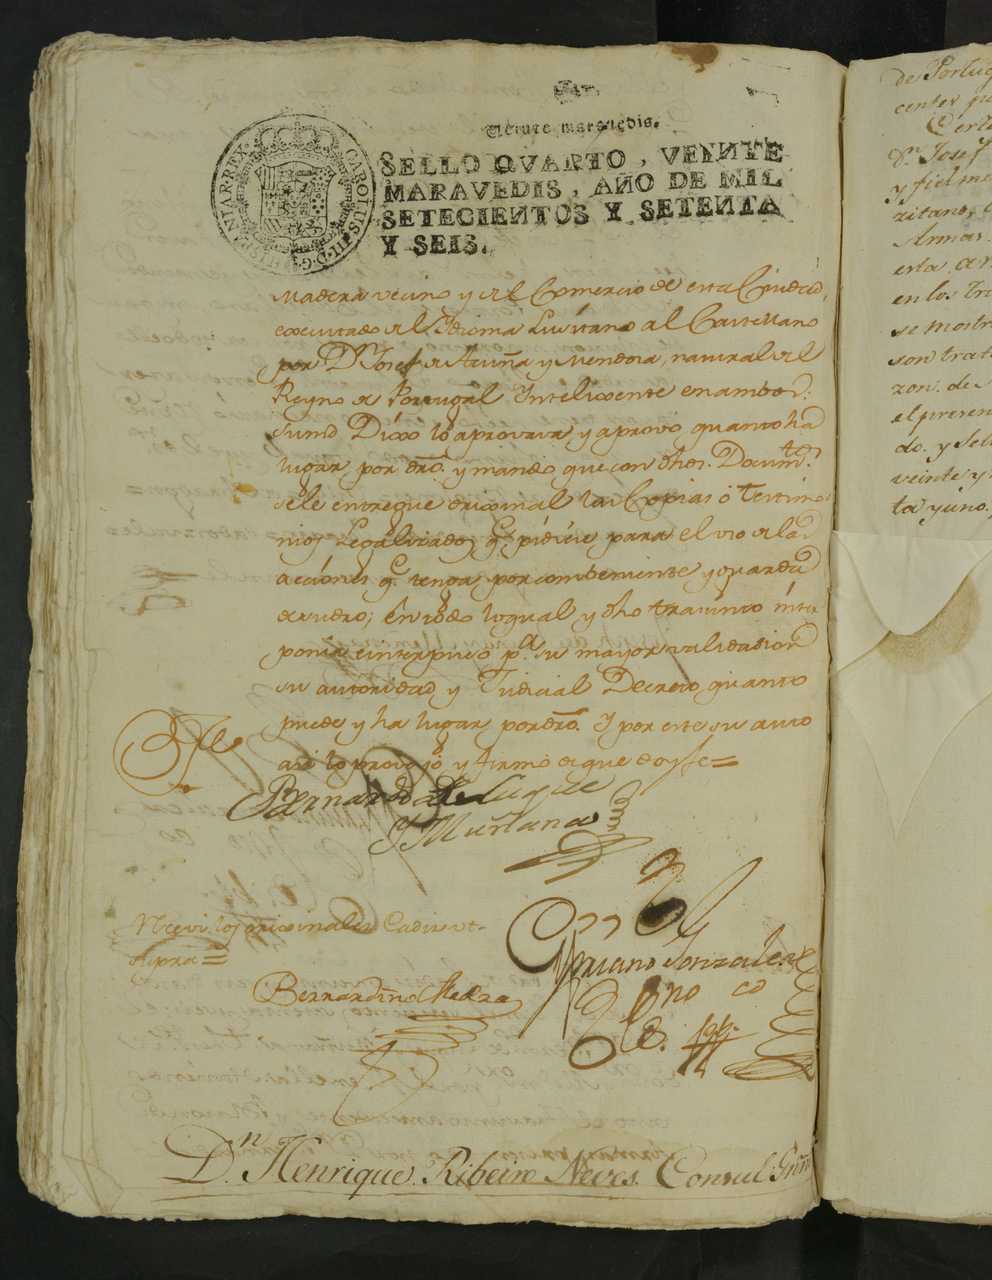 Veinte maravedis.
SELLO QVARTO, VEINTE
MARAVEDIS, AÑO DE MIL
SETECIENTOS Y SETENTA
Y SEIS.
CAROLUS III D. G. HISPANIAR REX
Madera vecino y del Comercio de esta Ciudad,
executado del Idioma Lusitano al Castellano
por Dn. Josef de Acuña y Mendoza, natural del
Reyno de Portugal Intelixente en ambos:
sumd Dixo lo aprovava, y aprovo quanto ha
lugar por dro. y mando que con dhos. Documtos.
se le entregue original las Copias ô testimo
nios Legalizados q. pidiere para el uso de las
acciones q. tenga por combeniente y guarda
de su dro; en todo lo qual y dho trasumto inter
ponia e interpuso pa. su mayor validacion
su autoridad y Judicial Decreto, quanto
puede y ha lugar por dro. Y por este su auto
asi lo proveyó y firmó de que doy fe =
Bernardo de Luque
Y Muñana
los originales Cadiz ut
supra =
Cypriano Gonzalez
Bernardino
Dn. Henrique Ribeiro Neves. Consul
de Portug
Dn. Josef
y fielme
zitano,
Armas
esta
en los tra
se mostr
son trata
zon. de
el presen
do. y sell
veinte y
ta y uno.